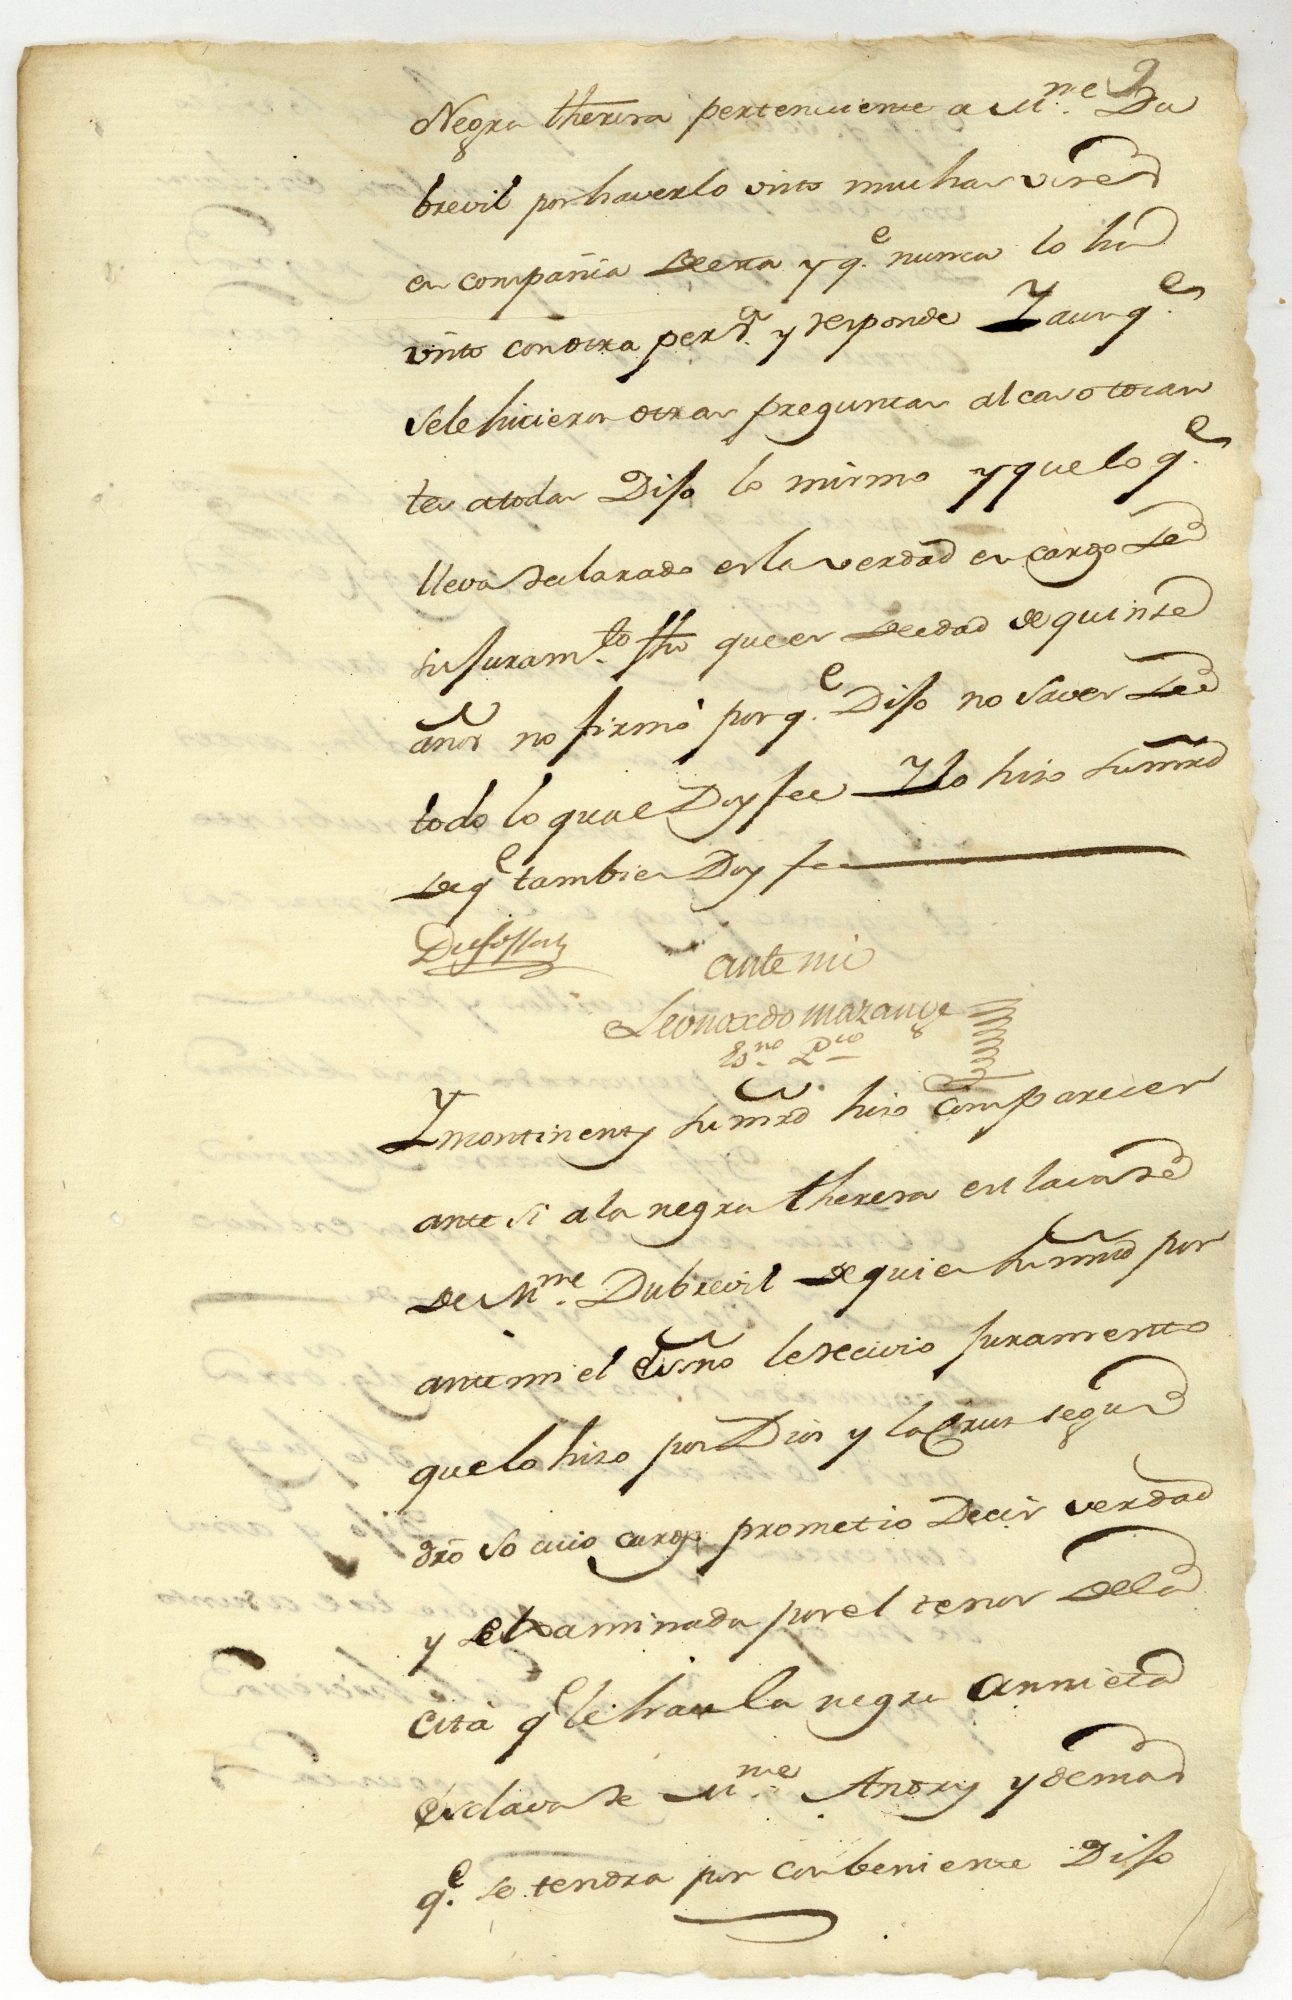 2
Negra theresa perteneciente a M.me Du
brevil por haverlo visto muchas veses
en compañia de esta y q.e nunca lo ha
visto con otra pers.a y responde Y aunq.e
se le hicieron otras preguntas al caso tocan
tes a todas Dijo lo mismo y que lo q.e
lleva declarado es la verdad en cargo de
su juram.to fho que es de edad de quinse
años no firmó por q.e Dijo no saver de
todo lo qual Doy fee Y lo hiso su mrd
de q.e tambien Doy fee
Dufossat
ante mi
Leonardo mazange
Es.no P.co
Ymontinenty su mrd hiso comparecer
ante si a la negra theresa esclava de
de M.me Dubrevil de quien su mrd por
ante mi el esno le recivio juramento
que lo hiso por Dios y la Crus segun
dro so cuio cargo prometio Decir verdad
y elxaminada por el tenor de la
cita q.e le hace la negra Annieta
esclava de M.me Andry y demas
q.e se tendra por conbeniente Dijo